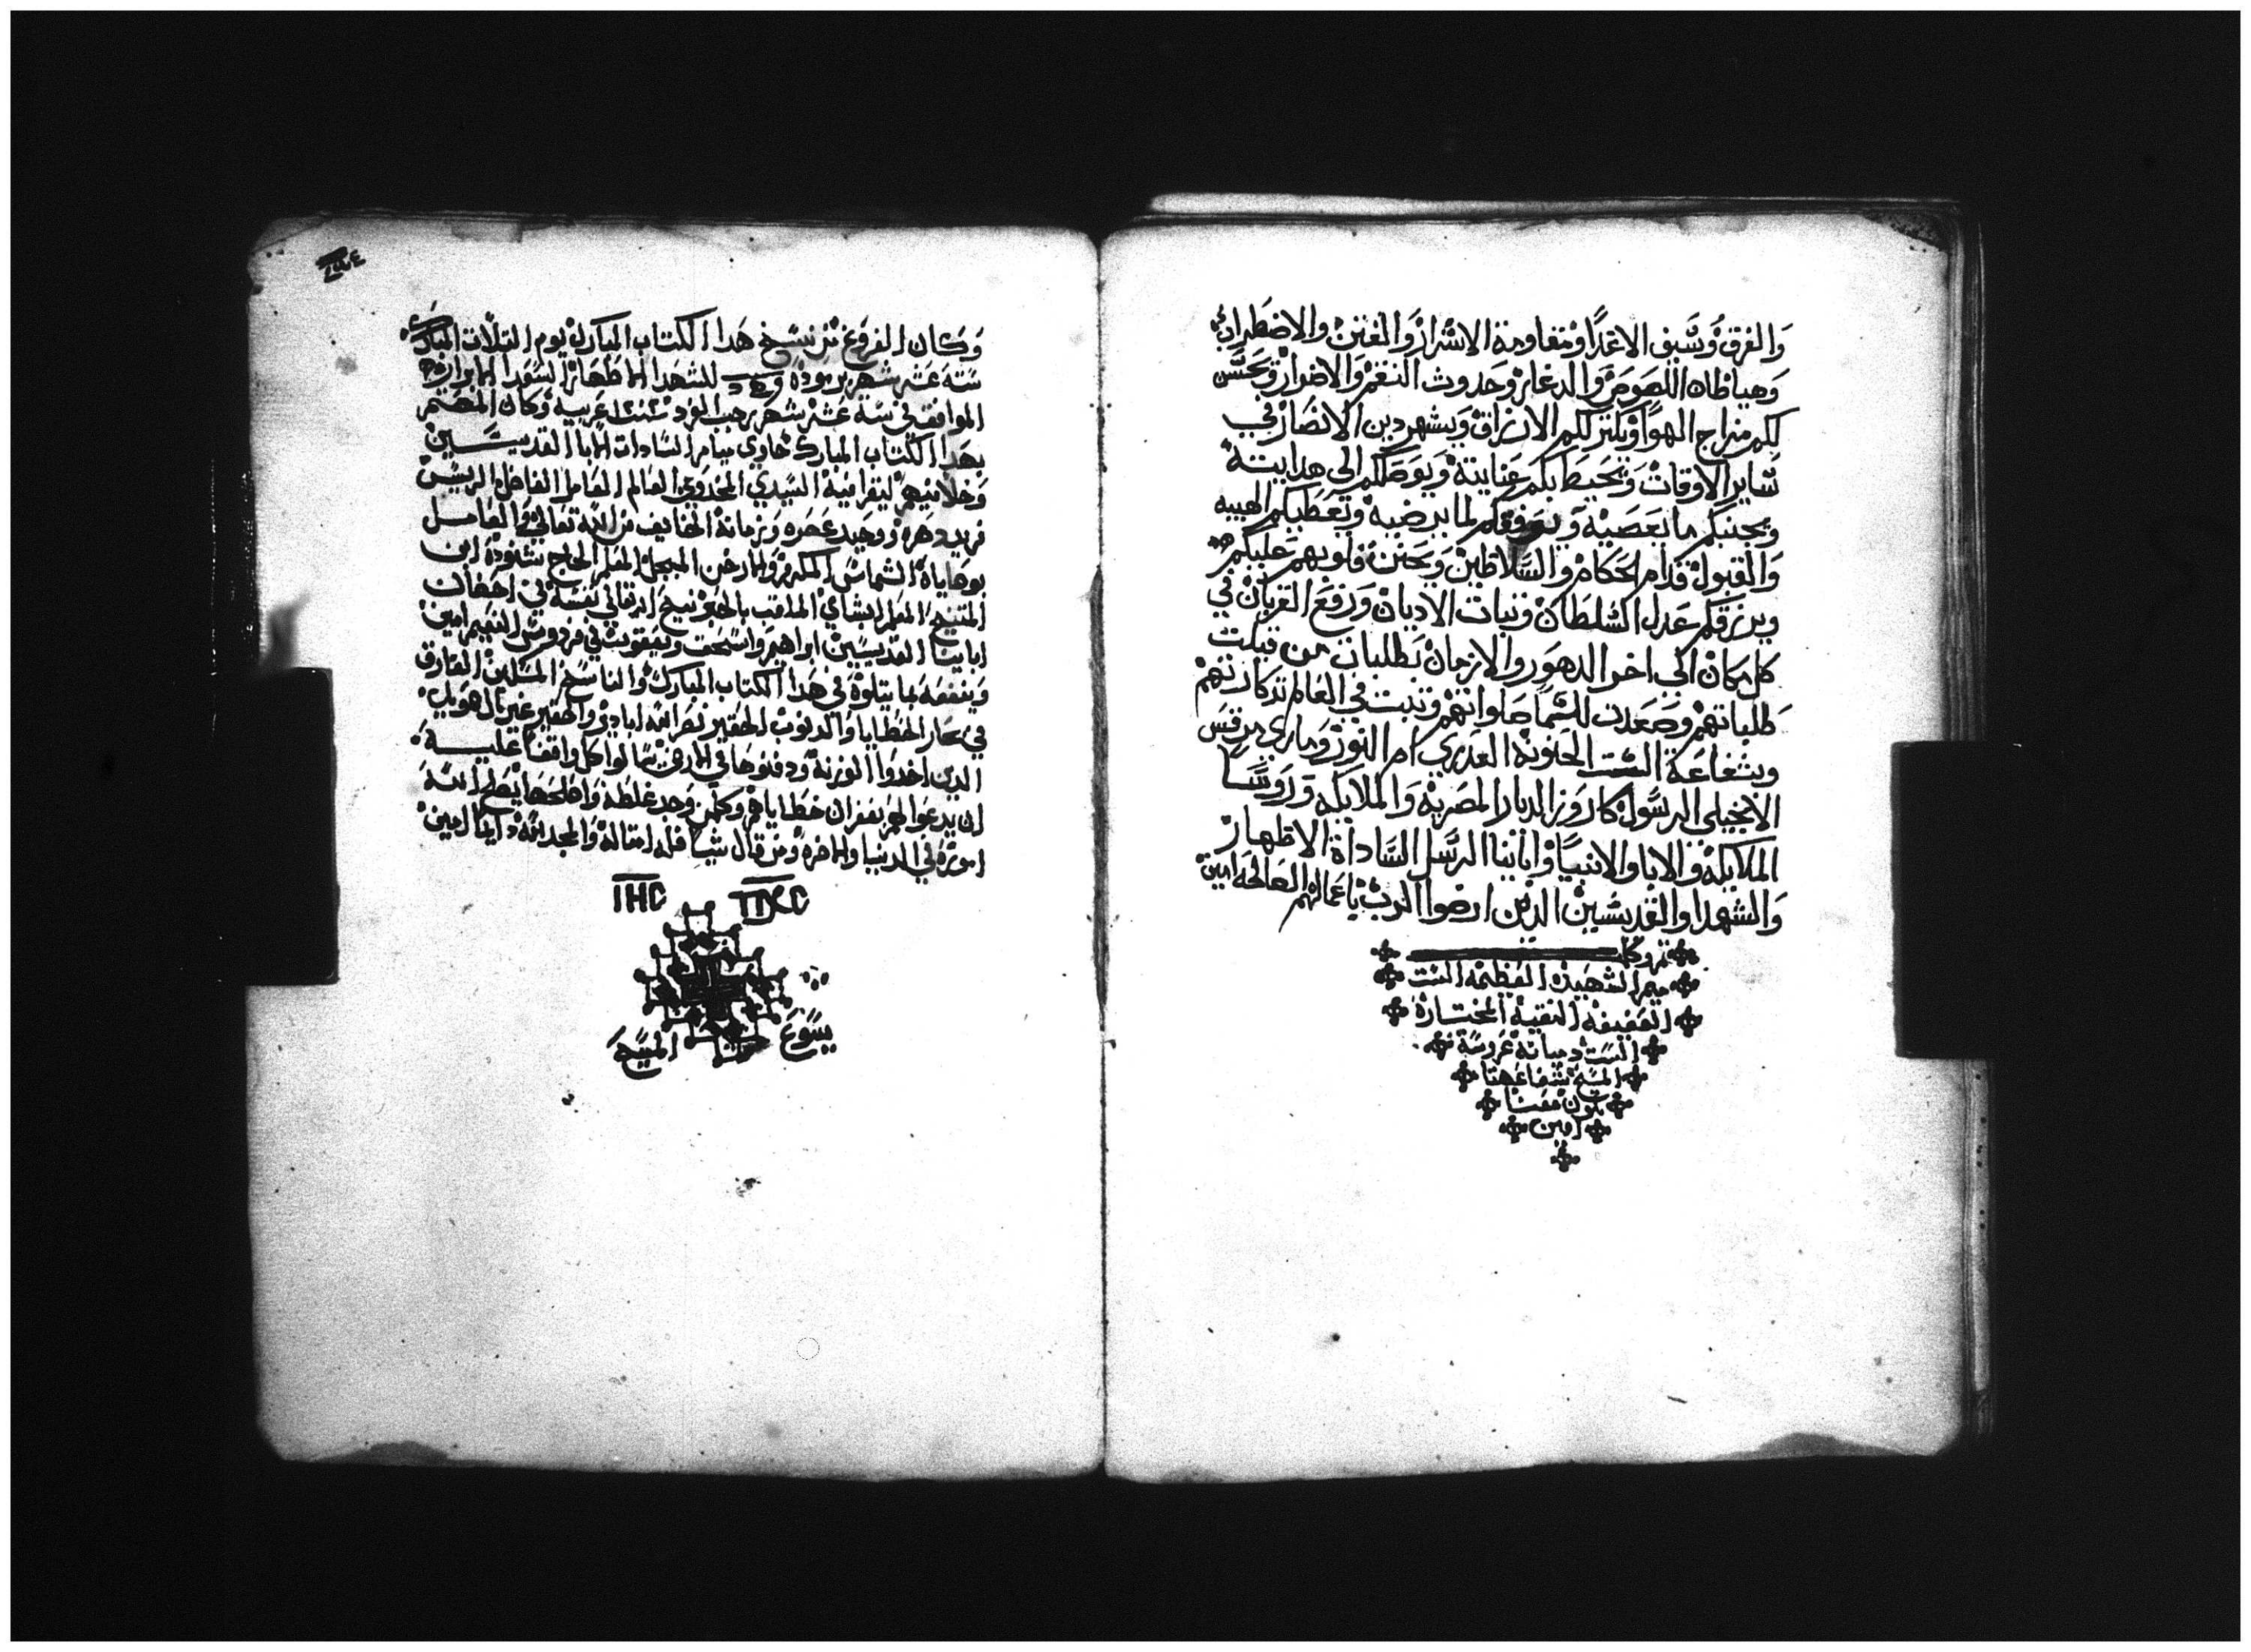 وَالغرق وَسَبي الاعدا وَمقاومة الاشرار وَالفتن والاضطراب
وَهياطات اللصوص وَالدعار وَحدوث النقم وَالاضرار ويحسن
لكم مزاج الهوا ويكتر لكم الارزاق وَيشهر دين الانصار في
سَاير الاوقات وَتحيط بكم عنايتة وَيوصلكم الى هدايتة
وَيجنبكم ما يغضبه وَيوفقكم لما يرضيه وَيعطيكم الهيبه
وَالقبول قدام الحكام وَالسَّلاطين وَيحنن قلوبهم عليكم
ويرزقكم عدل السلطان وَتبات الاديان وَرفع القربان في
كل مكان الي اخر الدهور والازمان بطلبات من قبلت
طلباتهم وصَعدت للسما صلواتهم وتبت في العالم تدكارتهم
وبشفاعة الست الحنونة العدري ام النور وماري مرقس
الانجيلي الرسول كاروز الديار المصرية وَالملايكه وَروسَا
الملايكه وَالابا والانبيا وابايْنا الرسل السَّاداة الاطهار
وَالشهدا والقديسين الدين ارضوا الرب باعمالهم الصالحه امين
تم وكمل
ميمر الشهيده العظيمه الست
العفيفه النقية المختارة
الست دميانه عروسة
المسيح شفاعتها
تكون معنا
امين
وَكان الفروغ من نسخ هَدا الكتاب المبارك يوم التلات المبارك
سَتة عَشر شهر برموده للشهدا الاطهار السعدا الابرار
الموافق في ستة عَشر شهر رجب الفرد سنة عَربيه وَكان المهتم
بهَدا الكتاب المبارك حَاوي ميامر السَادات الابا القديسَين
ليقرا فيه السَيدي المخدوم العالم العَامل الفاضل الريس
فريد دهره ووحيد عصره وَزمانه الخايف من الله تعالي والعَامل
بوصاياه الشماس المكرم والارخن المبجل المعلم الحاج شنوده ابن
المتنيح المعلم بشاي الملقب بالحبر نيح الله تعالي نفسه في احضان
ابايْنا القديسَين ابراهيم واسحق وَيعقوب في فردوس النعيم امين
وَينفعه بما يتلوه في هدا الكتاب المبارك والناسخ المسكين الغارق
في بحار الخطايا والدنوب الحقير
الدين اخدوا الوزنة وَدفنوها في الارض سَالوا كل واقفا عليه
ان يدعوا لهم بغفران خطاياهم وكلمن وجد غلطه واصلحها يصلح الله
اموره في الدنيا والاخره وَمن قال شيا فله امتاله وَالمجد لله دايما امين
ⲓⲏⲥ ⲡⲭⲥ
يسَوع المسَيح